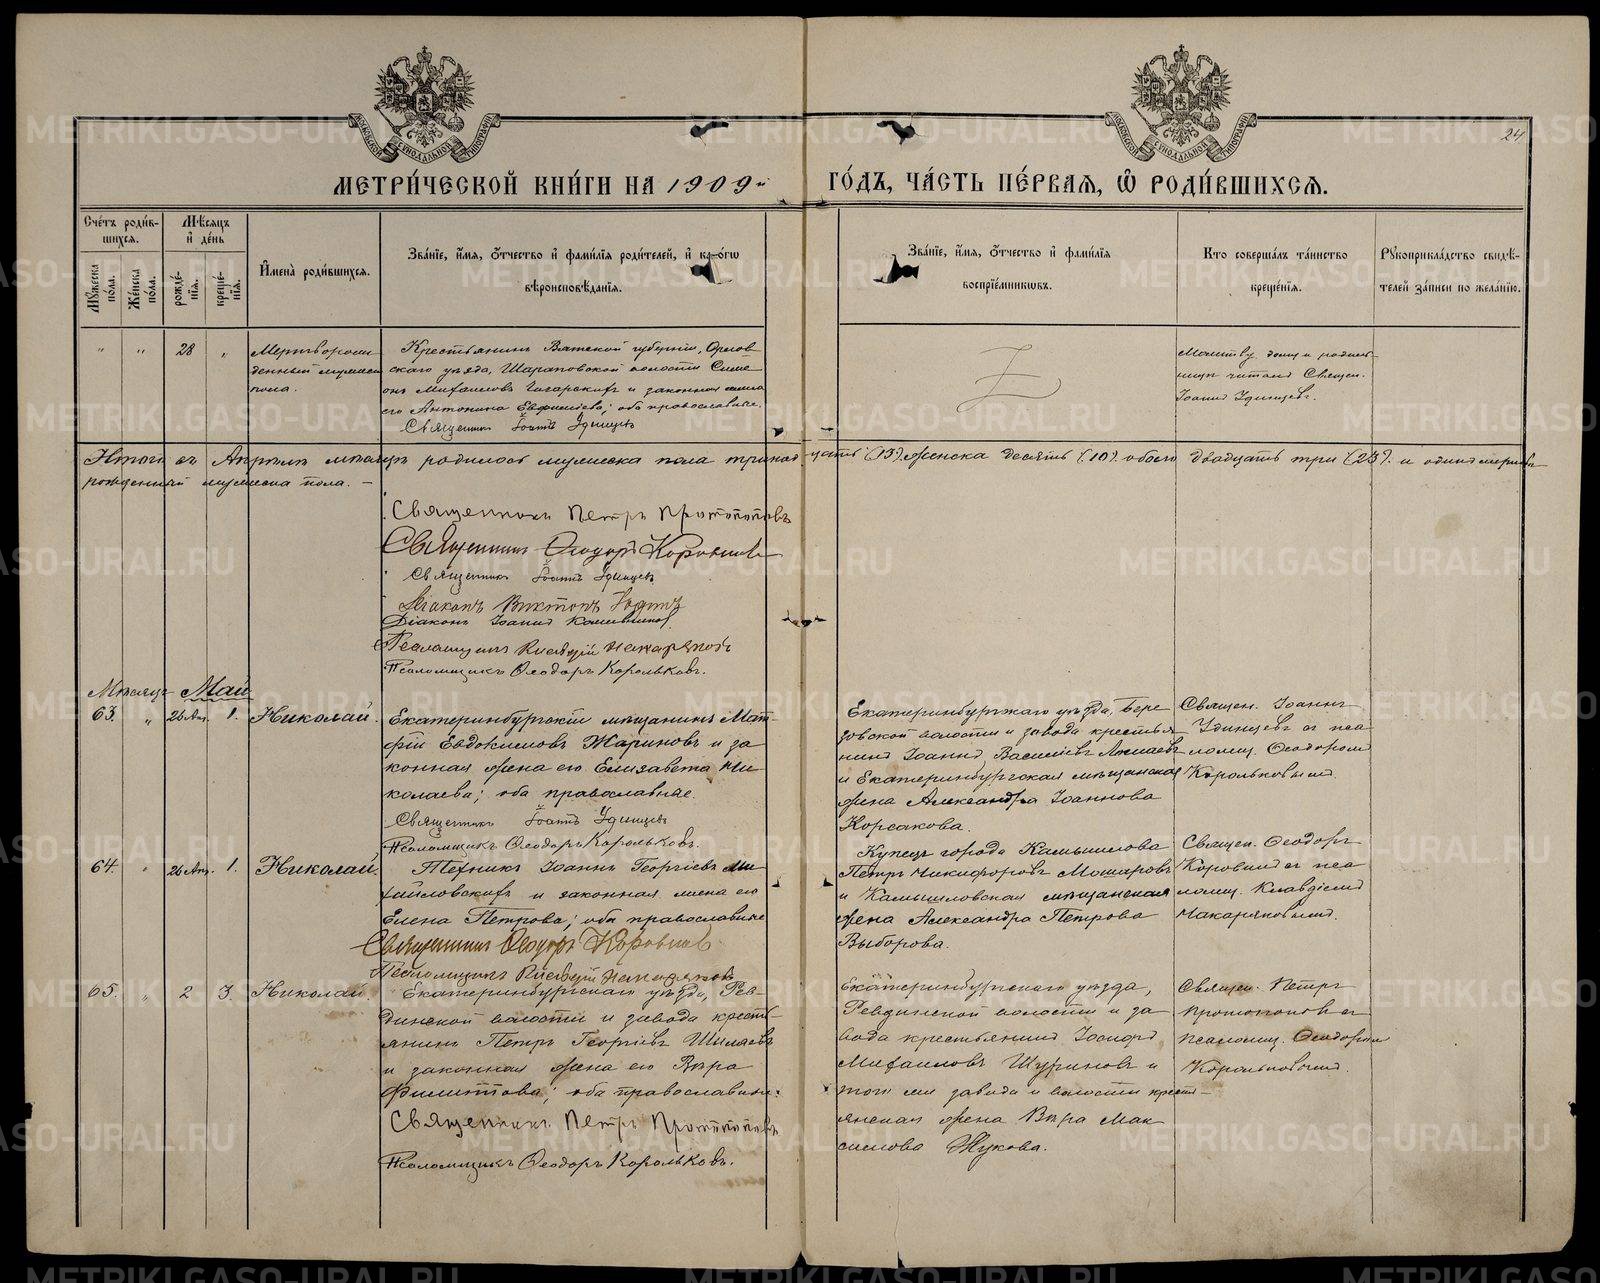 24
МЕТРИ́ЧЕСКОЙ КНИ́ГИ НА 1909й ГО́ДЪ, ЧА́СТЬ ПЕ́РВАЯ, Ѽ РОДИ́ВШИХСЯ.
Сче́тъ роди́в-
шихся.
Мѣ́сяцъ
и҆ де́нь
Мꙋ́жеска по́ла.
Же́нска по́ла.
рожде́-
нїя.
креще́-
нїя.
И҆мена̀ роди́вшихся.
Зва́нїе, и҆́мя, о҆́тчество и҆ фами́лїя роди́телей, и҆ како́гѡ
вѣроисповѣ́данїя.
Зва́нїе, и҆́мя, о҆́тчество и҆ фами́лїя
воспрїе́мникѡвъ.
Кто соверша́лъ та́инство
креще́нїя.
Рꙋкоприкла́дство свидѣ́-
телей за́писи по жела́нїю.
" " 28 "
Мертворож
денный мужеска
пола.
Крестьянинъ Вятской губернiи, Орлов
скаго уѣзда, Шараповской волости Симе
онъ Михаиловъ и законная жена
его Антонина Евфимiева; оба православные.
Священникъ Iоаннъ Удинцевъ
Молитву дому и родиль-
ницѣ читалъ Священ.
Iоаннъ Удинцевъ.
Итого въ Апрѣлѣ мѣсяцѣ родилось мужеска пола тринадцать (13) женска десять (10) обоего двадцать три (23). и одинъ мертво
рожденный мужеска пола. —
Священникъ Петръ Протопоповъ
Священникъ Ѳеодоръ Коровинъ
Священникъ Iоаннъ Удинцевъ
Дiаконъ Викторъ
Дiаконъ Iоаннъ
Псаломщикъ Клавдiй Макаряковъ
Псаломщикъ Ѳеодоръ Корольковъ.
Мѣсяцъ Май
63. " 26 Апр. 1. Николай.
Екатеринбургскiй мѣщанинъ Мат-
фiй Евдокимовъ Жариновъ и за
конная жена его Елизавета Ни-
колаева; оба православные.
Священникъ Iоаннъ Удинцевъ
Псаломщикъ Ѳеодоръ Корольковъ.
Екатеринбургскаго уѣзда, Бере
зовской волости и завода крестья
нинъ Iоаннъ Васильевъ
и Екатеринбургская мѣщанская
жена Александра Iоаннова
Корсакова.
Священ. Iоаннъ
Удинцевъ съ пса
ломщ. Ѳеодоромъ
Корольковымъ.
64. " 26 Апр. 1. Николай.
Техникъ Iоаннъ Георгiевъ Ми
хайловскихъ и законная жена его
Елена Петрова; оба православные
Священникъ Ѳеодоръ Коровинъ
Псаломщикъ Клавдiй Макаряковъ
Купецъ города Камышлова
Петръ Никифоровъ Мошаровъ
и Камышловская мѣщанская
жена Александра Петрова
Выборова.
Священ. Ѳеодоръ
Коровинъ съ пса
ломщ. Клавдiемъ
Макаряковымъ.
65. " 2 3. Николай.
Екатеринбургскаго уѣзда, Рев-
динской волости и завода кресть-
янинъ Петръ Георгiевъ Шилаевъ
и законная жена его Вѣра
Филиппова; оба православные.
Священникъ Петръ Протопоповъ
Псаломщикъ Ѳеодоръ Корольковъ.
Екатеринбургскаго уѣзда,
Ревдинской волости и за
вода крестьянинъ
Михаиловъ Шуриновъ и
того же завода и волости крест-
янская жена Вѣра Мак
симова Жукова.
Священ. Петръ
Протопоповъ съ
псаломщ. Ѳеодоромъ
Корольковымъ.
METRIKI.GASO-URAL.RU